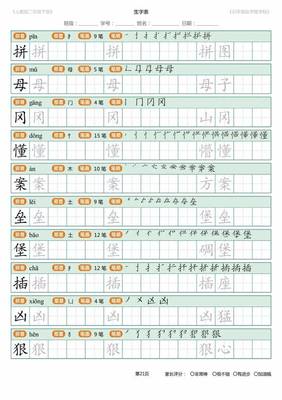 生字表
班级： 学号： 姓名： 日期：
拼音 pīn 部首 扌 笔画 9 笔 笔顺
拼 拼 拼 拼图
拼音 mǔ 部首 母 笔画 5 笔 笔顺
母 母 母 母子
拼音 gāng 部首 冂 笔画 4 笔 笔顺
冈 冈 冈 山冈
拼音 dǒng 部首 忄 笔画 15 笔 笔顺
懂 懂 懂
拼音 àn 部首 木 笔画 10 笔 笔顺
案 案 案 方案
拼音 lěi 部首 土 笔画 9 笔 笔顺
垒 垒 垒 堡垒
拼音 bǎo 部首 土 笔画 12 笔 笔顺
堡 堡 堡 碉堡
拼音 chā 部首 扌 笔画 12 笔 笔顺
插 插 插 插座
拼音 xiōng 部首 凵 笔画 4 笔 笔顺
凶 凶 凶 凶猛
拼音 hěn 部首 犭 笔画 9 笔 笔顺
狠 狠 狠 狠心
第21页 家长评分： ○非常棒 ○很不错 ○有进步 ○加油哦